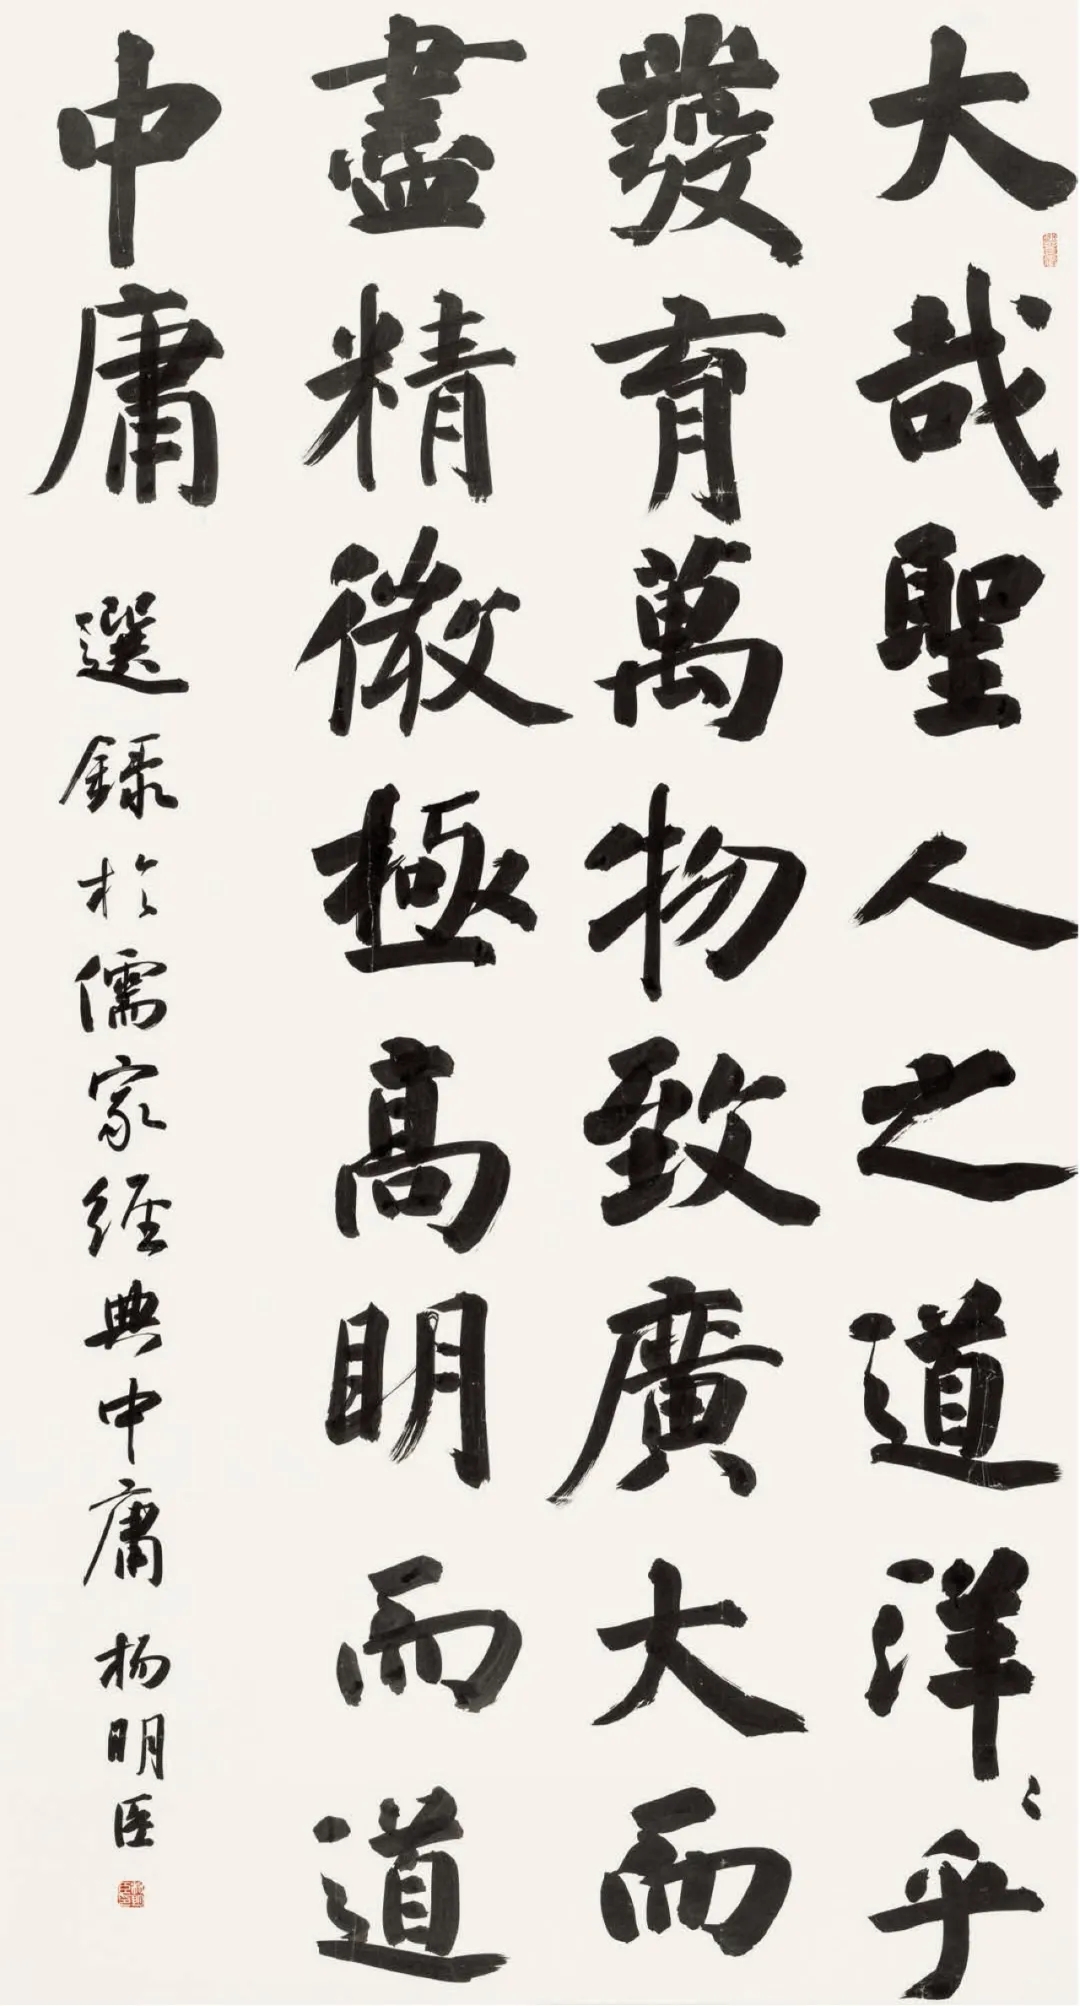 大哉聖人之道洋〻乎
發育萬物致廣大而
盡精微極高明而道
中庸
選錄於儒家經典中庸 楊明臣